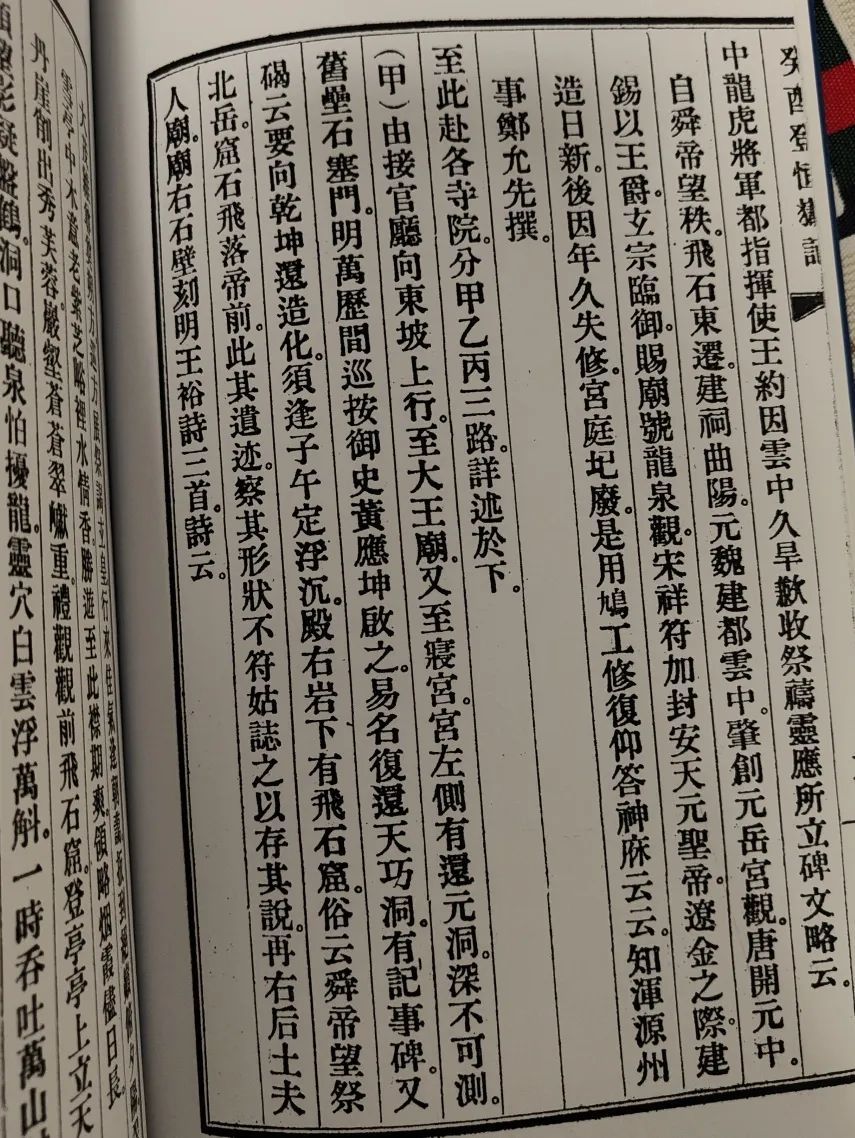 癸酉登恒嶽記
中龍虎將軍都指揮使王約因雲中久旱歉收祭禱靈應所立碑文略云。
自舜帝望秩。飛石東遷。建祠曲陽。元魏建都雲中。肇創元岳宮觀。唐開元中。
錫以王爵。玄宗臨御。賜廟號龍泉觀。宋祥符加封安天元聖帝。遼金之際。建
造日新。後因年久失修。宮庭圮廢。是用鳩工修復仰答神庥云云。知渾源州
事鄭允先撰。
至此赴各寺院。分甲乙丙三路。詳述於下。
(甲)由接官廳向東坡上行。至大王廟。又至寢宮。宮左側有還元洞。深不可測。
舊壘石塞門。明萬歷間巡按御史黃應坤啟之。易名復還天巧洞。有記事碑。又
碣云要向乾坤還造化。須逢子午定浮沉。殿右岩下有飛石窟。俗云舜帝望祭
北岳。窟石飛落帝前。此其遺迹。察其形狀不符姑誌之以存其說。再右后土夫
人廟。廟右石壁刻明王裕詩三首。詩云。
勝遊至此襟期爽。領略烟霞儘日長。
丹崖削出秀芙蓉。巖壑蒼蒼翠巘重。禮觀觀前飛石窟。登亭亭上立天
鶴。洞口聽泉怕擾龍。靈穴白雲浮萬斛。一時吞吐萬山